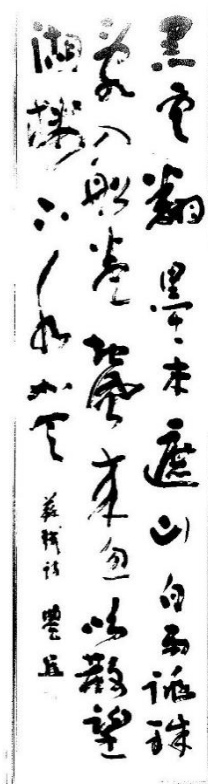 黑雲翻墨未遮山白雨跳珠
亂入船卷地風來忽吹散望
湖樓下水如天
蘇軾詩